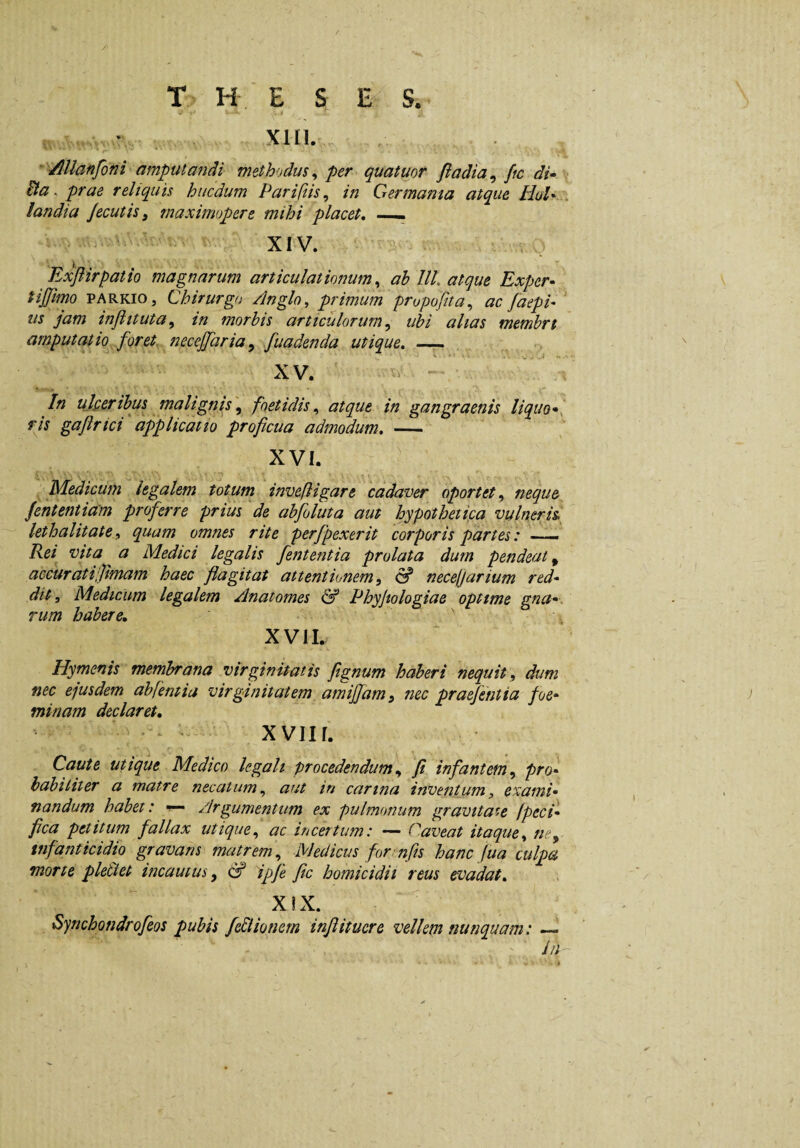 THESES.
XIII.
Allanſoni amputandi methodus, per quatuor ſtadia, ſic di-
cta, prae reliquis hucdum Pariſiis, in Germania atque Hol-
landia ſecutis, maximopere mihi placet. —
XIV.
Exſtirpatio magnarum articulationum, ab Ill. atque Exper-
tiſſimo PARKIO, Chirurgo Anglo, primum propoſita, ac ſaepi-
us jam inſtituta, in morbis articulorum, ubi alias membri
amputatio foret neceſſaria, ſuadenda utique. —
XV.
In ulceribus malignis, foetidis, atque in gangraenis liquo-
ris gaſtrici applicatio proficua admodum. —
XVI.
Medicum legalem totum inveſtigare cadaver oportet, neque
ſententiam proferre prius de abſoluta aut hypothetica vulneris
lethalitate, quam omnes rite perſpexerit corporis partes: —
Rei vita a Medici legalis ſententia prolata dum pendeat,
accuratiſſimam haec flagitat attentionem, & neceſſarium red-
dit, Medicum legalem Anatomes & Phyſiologiae optime gna-
rum habere.
XVII.
Hymenis membrana virginitatis ſignum haberi nequit, dum
nec ejusdem abſentia virginitatem amiſſam, nec praeſentia foe-
minam declaret.
XVIII.
Caute utique Medico legali procedendum, ſi infantem, pro-
babiliter a matre necatum, aut in carina inventum, exami-
nandum habet: — Argumentum ex pulmonum gravitate ſpeci-
fica petitum fallax utique, ac incertum: — Caveat itaque, ne,
infanticidio gravans matrem, Medicus forenſis hanc ſua culpa
morte plectet incautus, & ipſe ſic homicidii reus evadat.
XIX.
Synchondroſeos pubis ſectionem inſtituere vellem nunquam: —
In